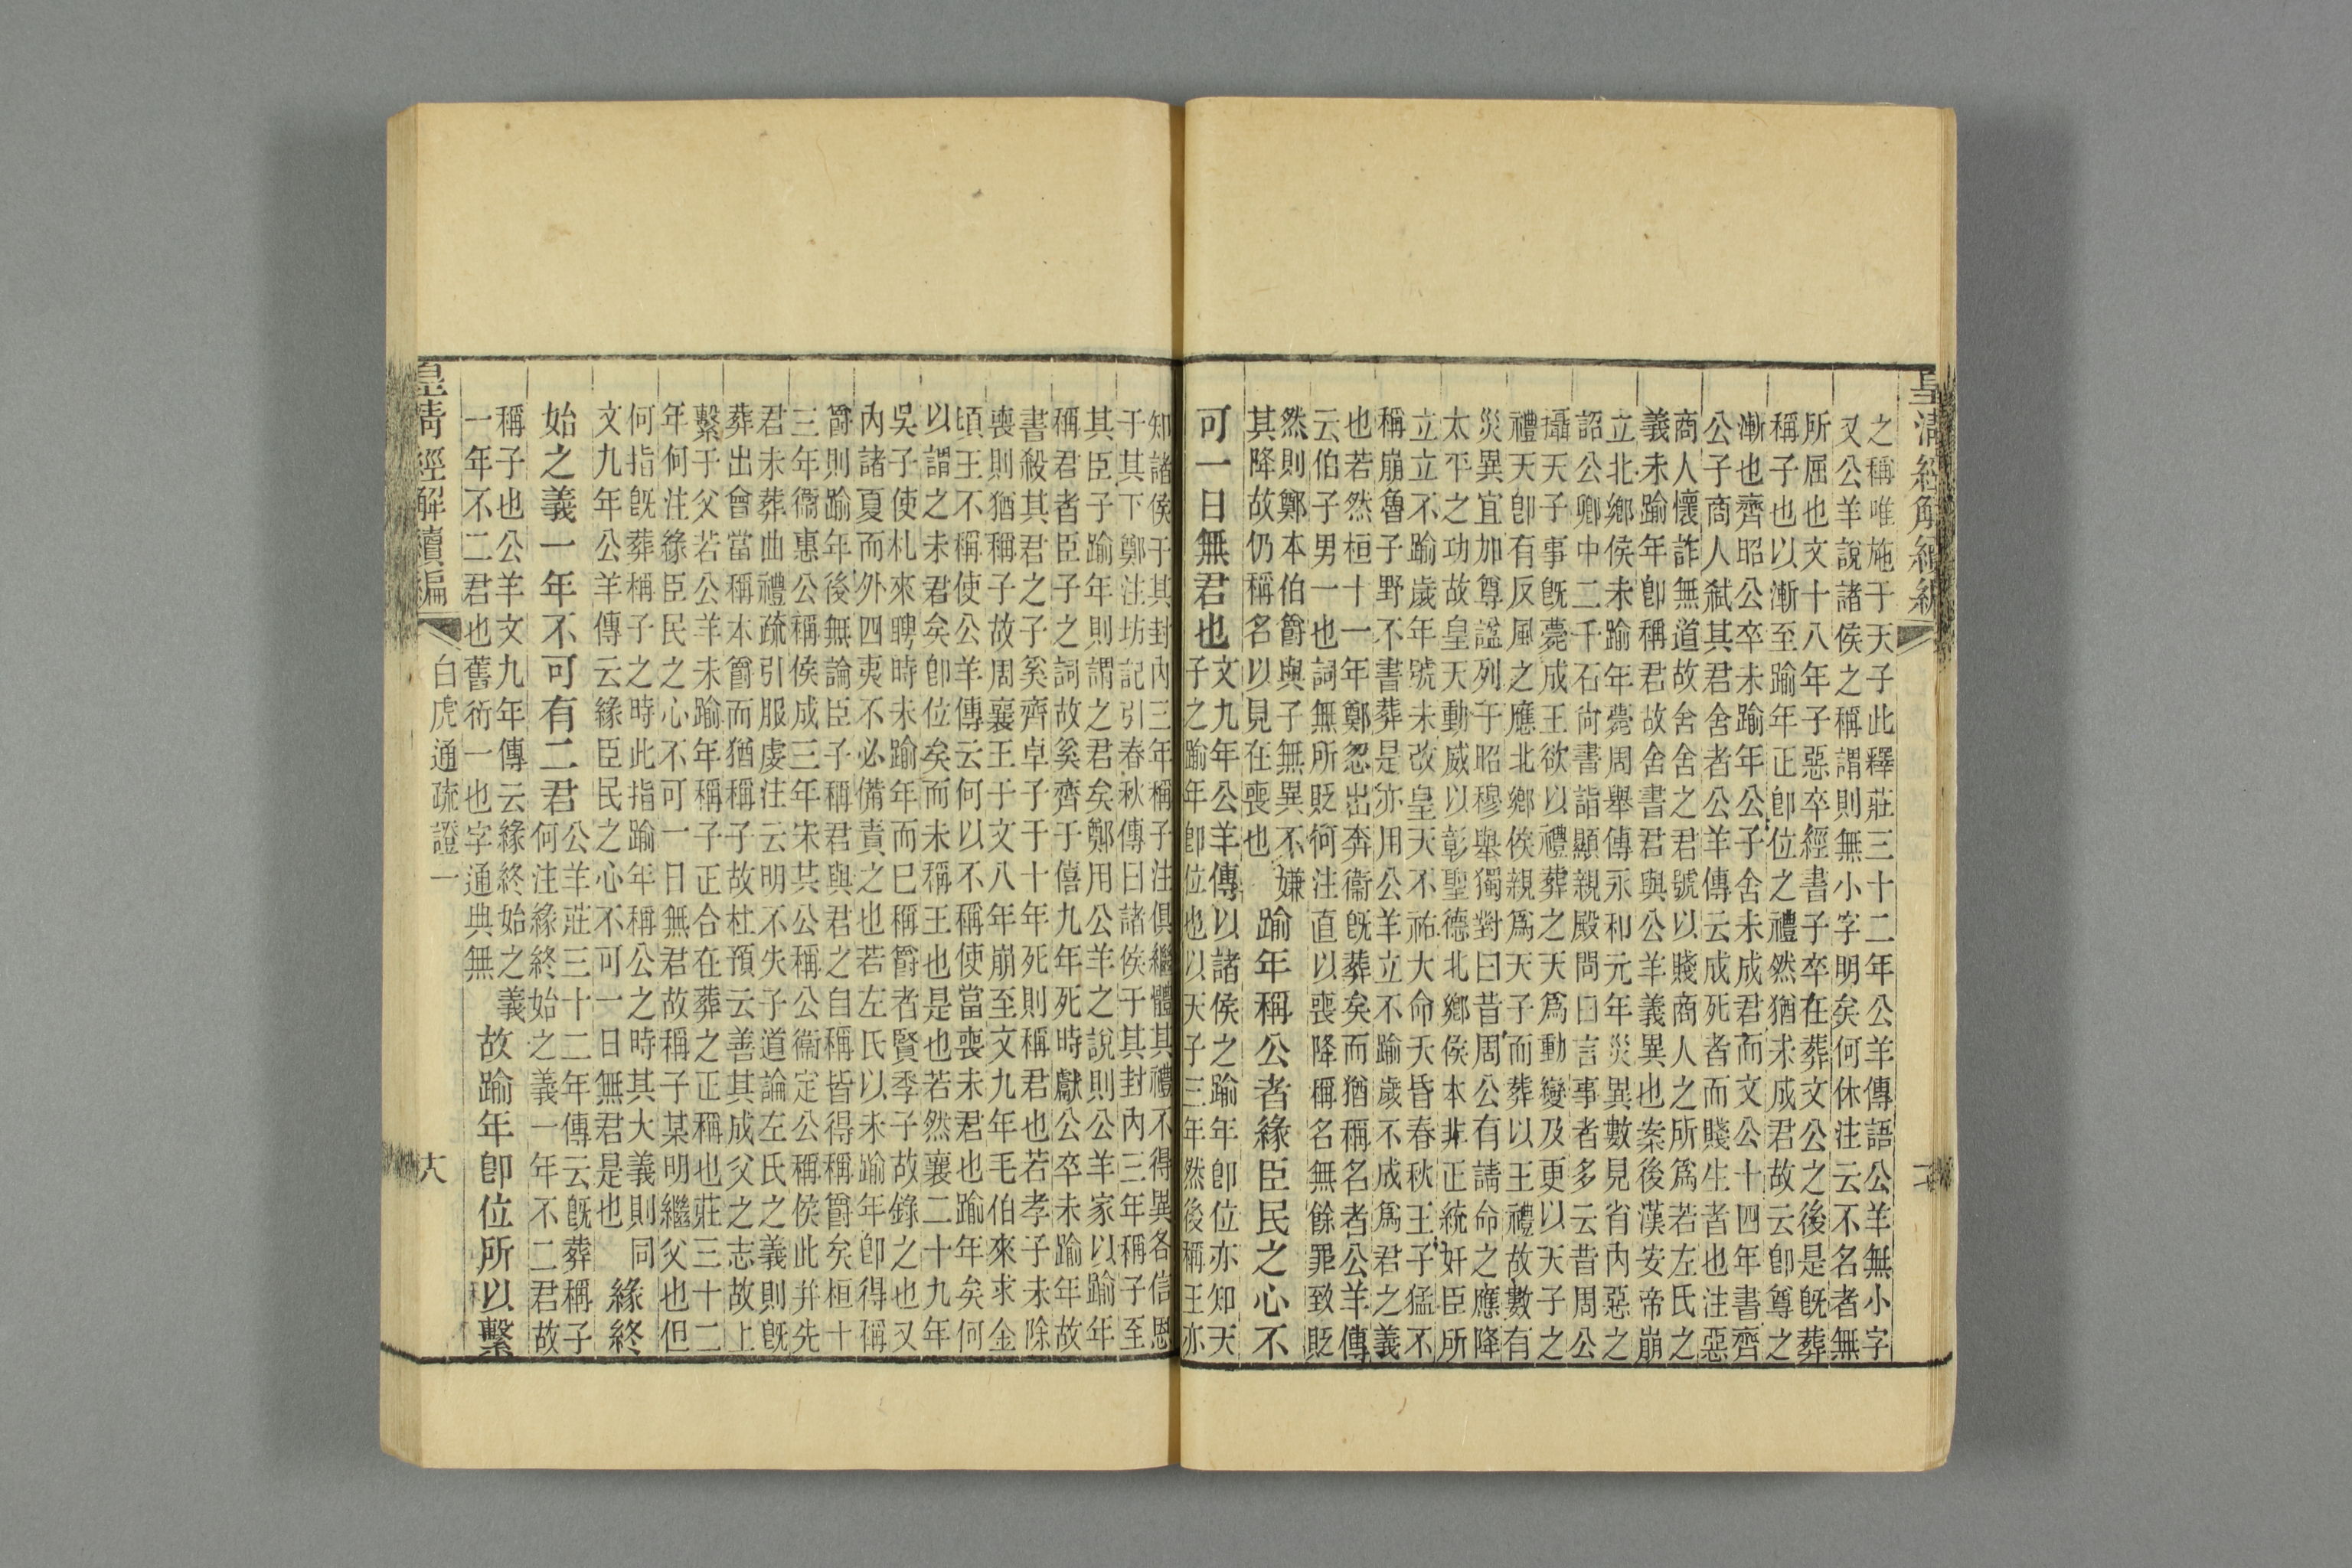 皇清經解續編
之稱唯施于天子此釋莊三十二年公羊傳語公羊無小字
又公羊說諸侯之稱謂則無小字明矣何休注云不名者無
所屈也文十八年子惡卒經書子卒在葬文公之後是既葬
稱子也以漸至踰年正卽位之禮然猶未成君故云卽尊之
漸也齊昭公卒未踰年公子舍未成君而文公十四年書齊
公子商人弒其君舍者公羊傳云成死者而賤生者也注惡
商人懷詐無道故舍舍之君號以賤商人之所爲若左氏之
義未踰年卽稱君故舍書君與公羊義異也案後漢安帝崩
立北鄉侯未踰年薨周舉傳永和元年災異數見省內惡之
詔公卿中二千石尙書詣顯親殿問曰言事者多云昔周公
攝天子事既薨成王欲以禮葬之天爲動變及更以天子之
禮天卽有反風之應北鄉侯親爲天子而葬以王禮故數有
災異宜加尊諡列于昭穆舉獨對曰昔周公有請命之應降
太平之功故皇天動威以彰聖德北鄉侯本非正統奸臣所
立立不踰歲年號未改皇天不祐大命夭昏春秋王子猛不
稱崩魯子野不書葬是亦用公羊立不踰歲不成爲君之義
也若然桓十一年鄭忽出奔衞既葬矣而猶稱名者公羊傳
云伯子男一也詞無所貶何注直以喪降稱名無餘罪致貶
然則鄭本伯爵與子無異不嫌
其降故仍稱名以見在喪也
踰年稱公者緣臣民之心不
可一日無君也
文九年公羊傳以諸侯之踰年卽位亦知天
子之踰年卽位也以天子三年然後稱王亦
知諸侯于其封內三年稱子注俱繼體其禮不得異各信恩
于其下鄭注坊記引春秋傳曰諸侯于其封內三年稱子至
其臣子踰年則謂之君矣鄭用公羊之說則公羊家以踰年
稱君者臣子之詞故奚齊于僖九年死時獻公卒未踰年故
書殺其君之子奚齊卓子于十年死則稱君也若孝子未除
喪則猶稱子故周襄王于文八年崩至文九年毛伯來求金
頃王不稱使公羊傳云何以不稱使當喪未君也踰年矣何
以謂之未君矣卽位矣而未稱王也是也若然襄二十九年
吳子使札來聘時未踰年而巳稱爵者賢季子故錄之也又
內諸夏而外四夷不必備責之也若左氏以未踰年卽得稱
爵則踰年後無論臣子稱君與君之自稱皆得稱爵矣桓十
三年衞惠公稱侯成三年宋共公稱公衞定公稱侯此幷先
君未葬曲禮疏引服虔注云明不失子道論左氏之義則既
葬出會當稱本爵而猶稱子故杜預云善其成父之志故上
繫于父若公羊未踰年稱子正合在葬之正稱也莊三十二
年何注緣臣民之心不可一日無君故稱子某明繼父也但
何指既葬稱子之時此指踰年稱公之時其大義則同
文九年公羊傳云緣臣民之心不可一日無君是也
緣終
始之義一年不可有二君
公羊莊三十二年傳云既葬稱子
何注緣終始之義一年不二君故
稱子也公羊文九年傳云緣終始之義
一年不二君也舊衍一也字通典無
故踰年卽位所以繫
皇清經解續編
白虎通疏證一
十八